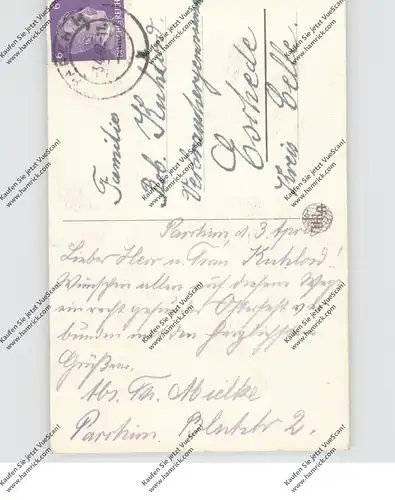 Familie
Rob. Kuhlow
Eschede
Kreis Celle
Parchim, d. 3. April
Lieber Herr u. Frau Kuhlow!
Wünschen allen auf diesem Wege
ein recht Osterfest ver
bunden mit den herzlichsten
Grüßen.
Abs. Fr. Mielke
Parchim. Blutstr 2.
Kaufen Sie jetzt VueScan!
www.hamrick.com!